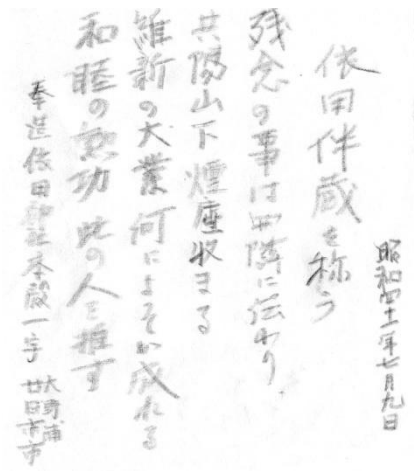 昭和四十一年七月九日
依田伴蔵を称う
残念の事は四隣に伝わり
共陽山下煙塵収まる
維新の大業何によそか成れる
和睦の勲功此の人を推す
奉造依田神社本殿一宇
大野浦
廿日市市